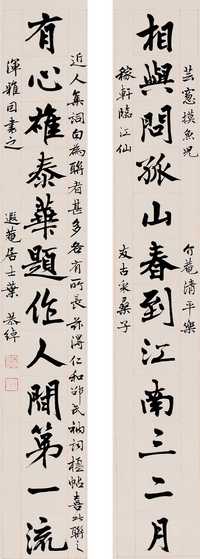 芸窻摸魚兒 竹菴清平樂
相與問孤山春到江南三二月
稼軒臨江仙 友古采桑子
近人集詞句為聯者甚多各有所長茲得仁和邵氏衲詞楹帖喜此聯之
有心雄泰華題作人間第一流
渾雅因書之 遐菴居士葉恭綽